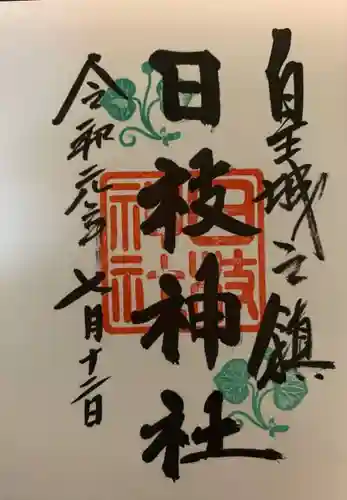 皇城之鎮
日枝神社
日枝神社
令和元年七月十二日